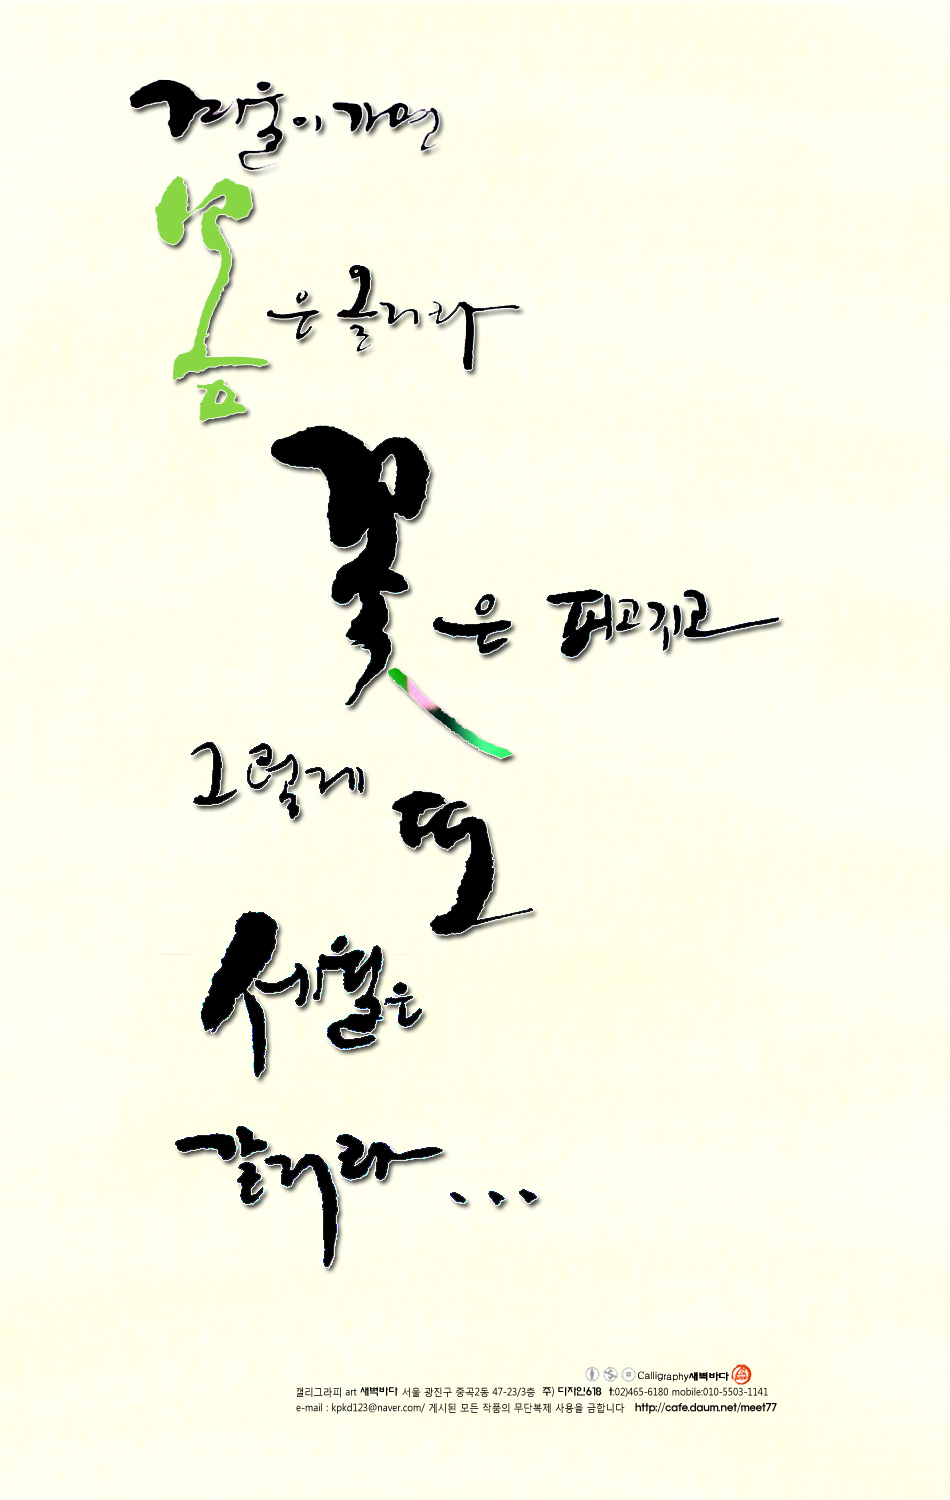 겨울이 가면
봄은 올리라
꽃은 피고지고
그렇게 또
세월은
갈리라...
Calligraphy새벽바다
캘리그라피 art 새벽바다 서울 광진구 중곡2동 47-23/3층 주) 디자인618 t:02)465-6180 mobile:010-5503-1141
e-mail : kpkd123@naver.com/ 게시된 모든 작품의 무단복제 사용을 금합니다 http://cafe.daum.net/meet77